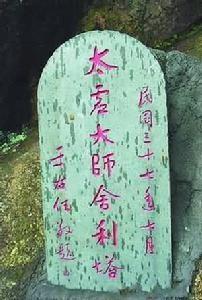 民國三十七年七月
太虛大師舍利塔
于右任敬題